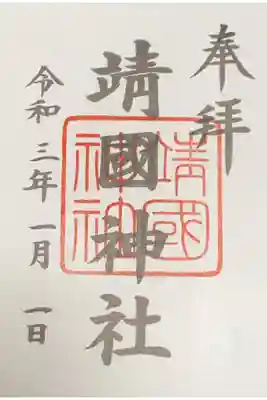 奉拝
靖國神社
靖國
神社
令和三年一月一日